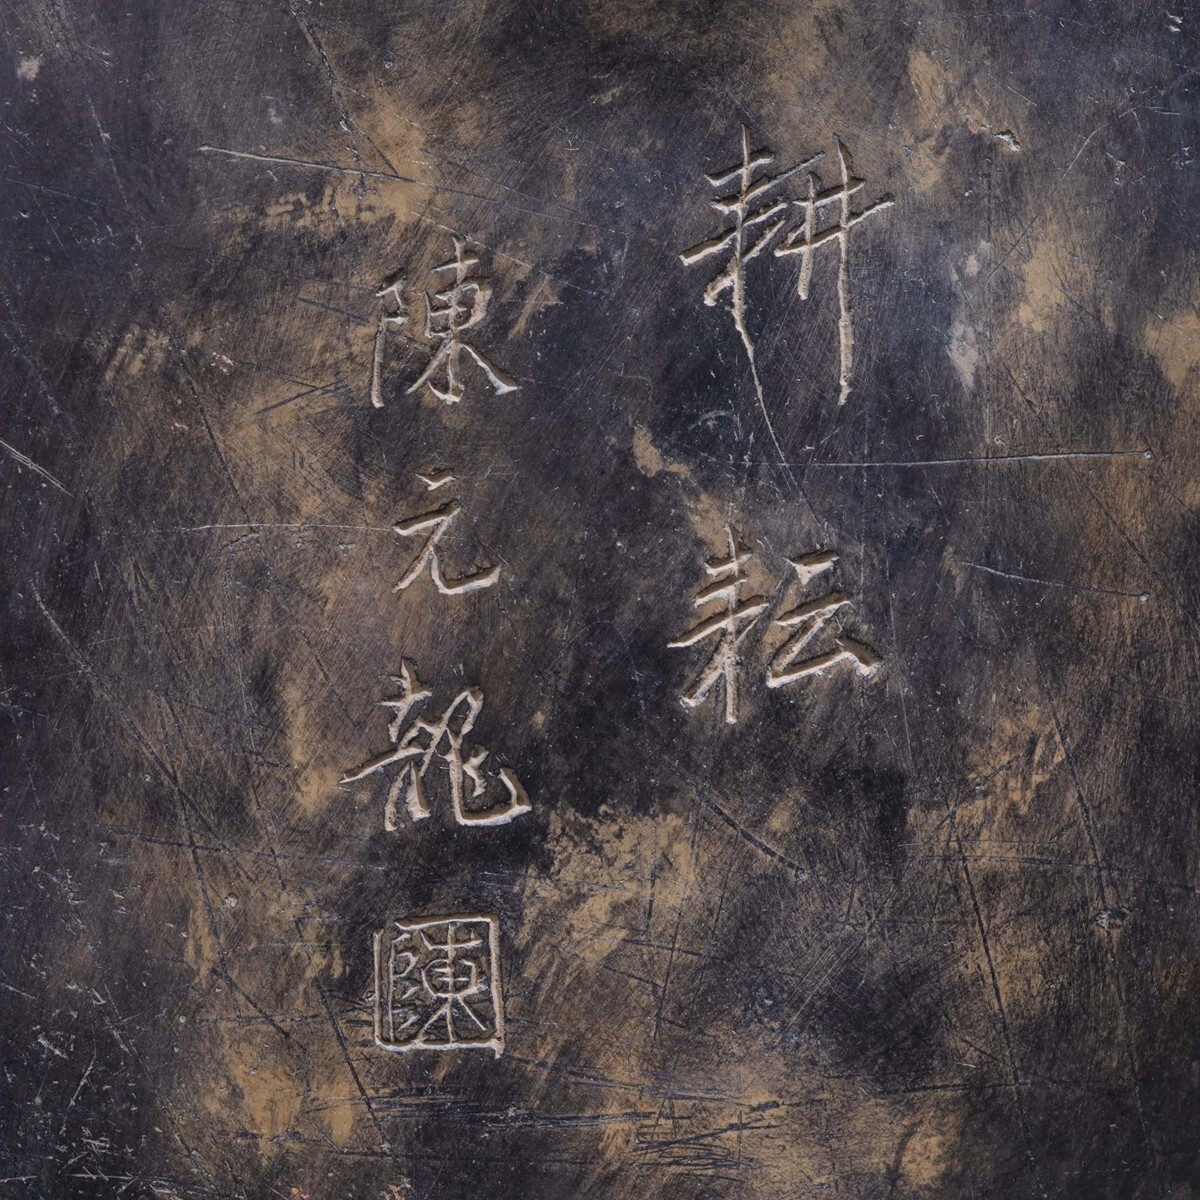 耕耘
陳元龍
陳